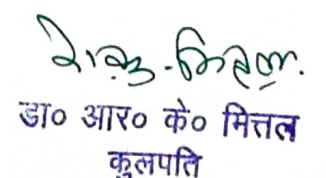 डा० आर० के० मित्तल
कुलपति